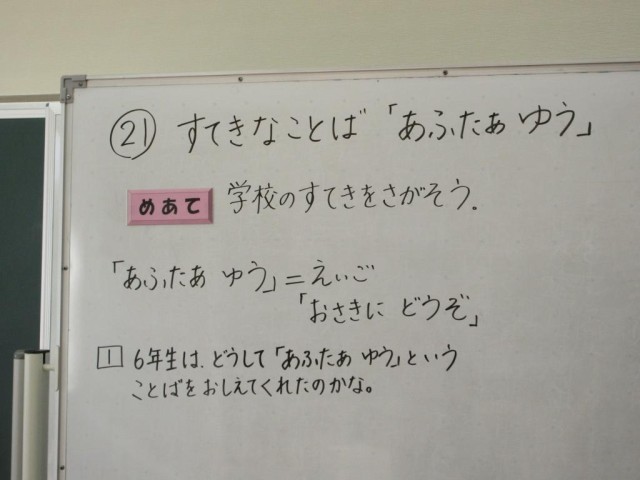 ㉑ すてきなことば「あふたぁ ゆう」
めあて 学校のすてきをさがそう.
「あふたぁ ゆう」=えいご
「おさきに どうぞ」
1 6年生は、どうして「あふたぁ ゆう」という
ことばをおしえてくれたのかな。